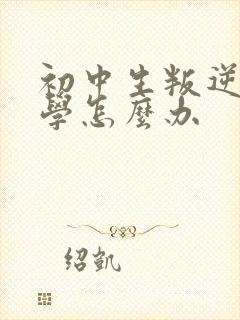 初中生叛逆
學怎麼办
绍凯